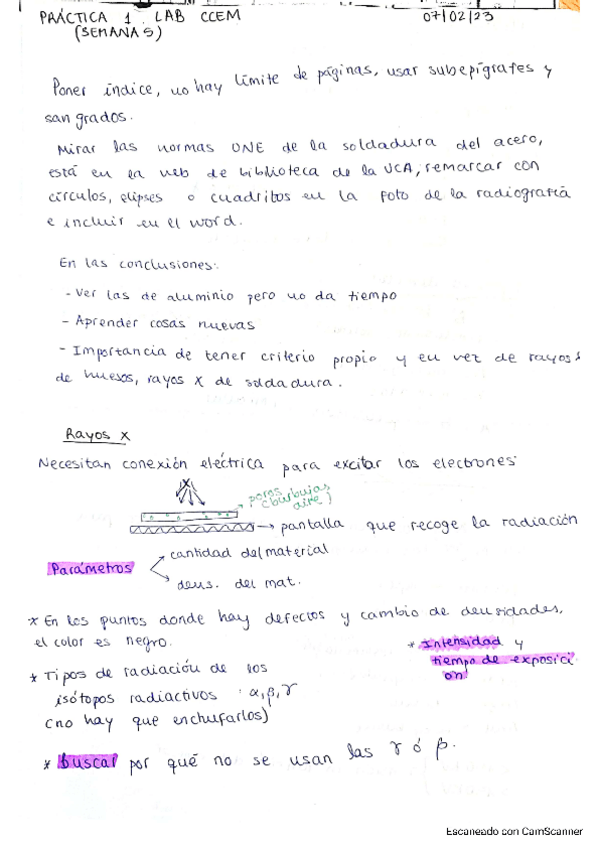 PRÁCTICA 1 LAB CCEM 07/02/23
(SEMANA 5)
Poner índice, no hay límite de páginas, usar subepígrafes y
sangrados.
Mirar las normas UNE de la soldadura del acero,
está en la web de biblioteca de la UCA, remarcar con
círculos, elipses o cuadritos en la foto de la radiografía
e incluir en el word.
En las conclusiones:
- Ver las de aluminio pero no da tiempo
- Aprender cosas nuevas
- Importancia de tener criterio propio y en vez de rayos
de huesos, rayos X de soldadura.
Rayos X
Necesitan conexión eléctrica para excitar los electrones
poros
(burbujas
aire)
→ pantalla que recoge la radiación
Parámetros
cantidad del material
dens. del mat.
* En los puntos donde hay defectos y cambio de densidades,
el color es negro.
* Intensidad y
tiempo de exposici
on
* Tipos de radiación de los
isótopos radiactivos : α, β, γ
(no hay que enchufarlos)
* buscar por qué no se usan las γ ó β.
Escaneado con CamScanner